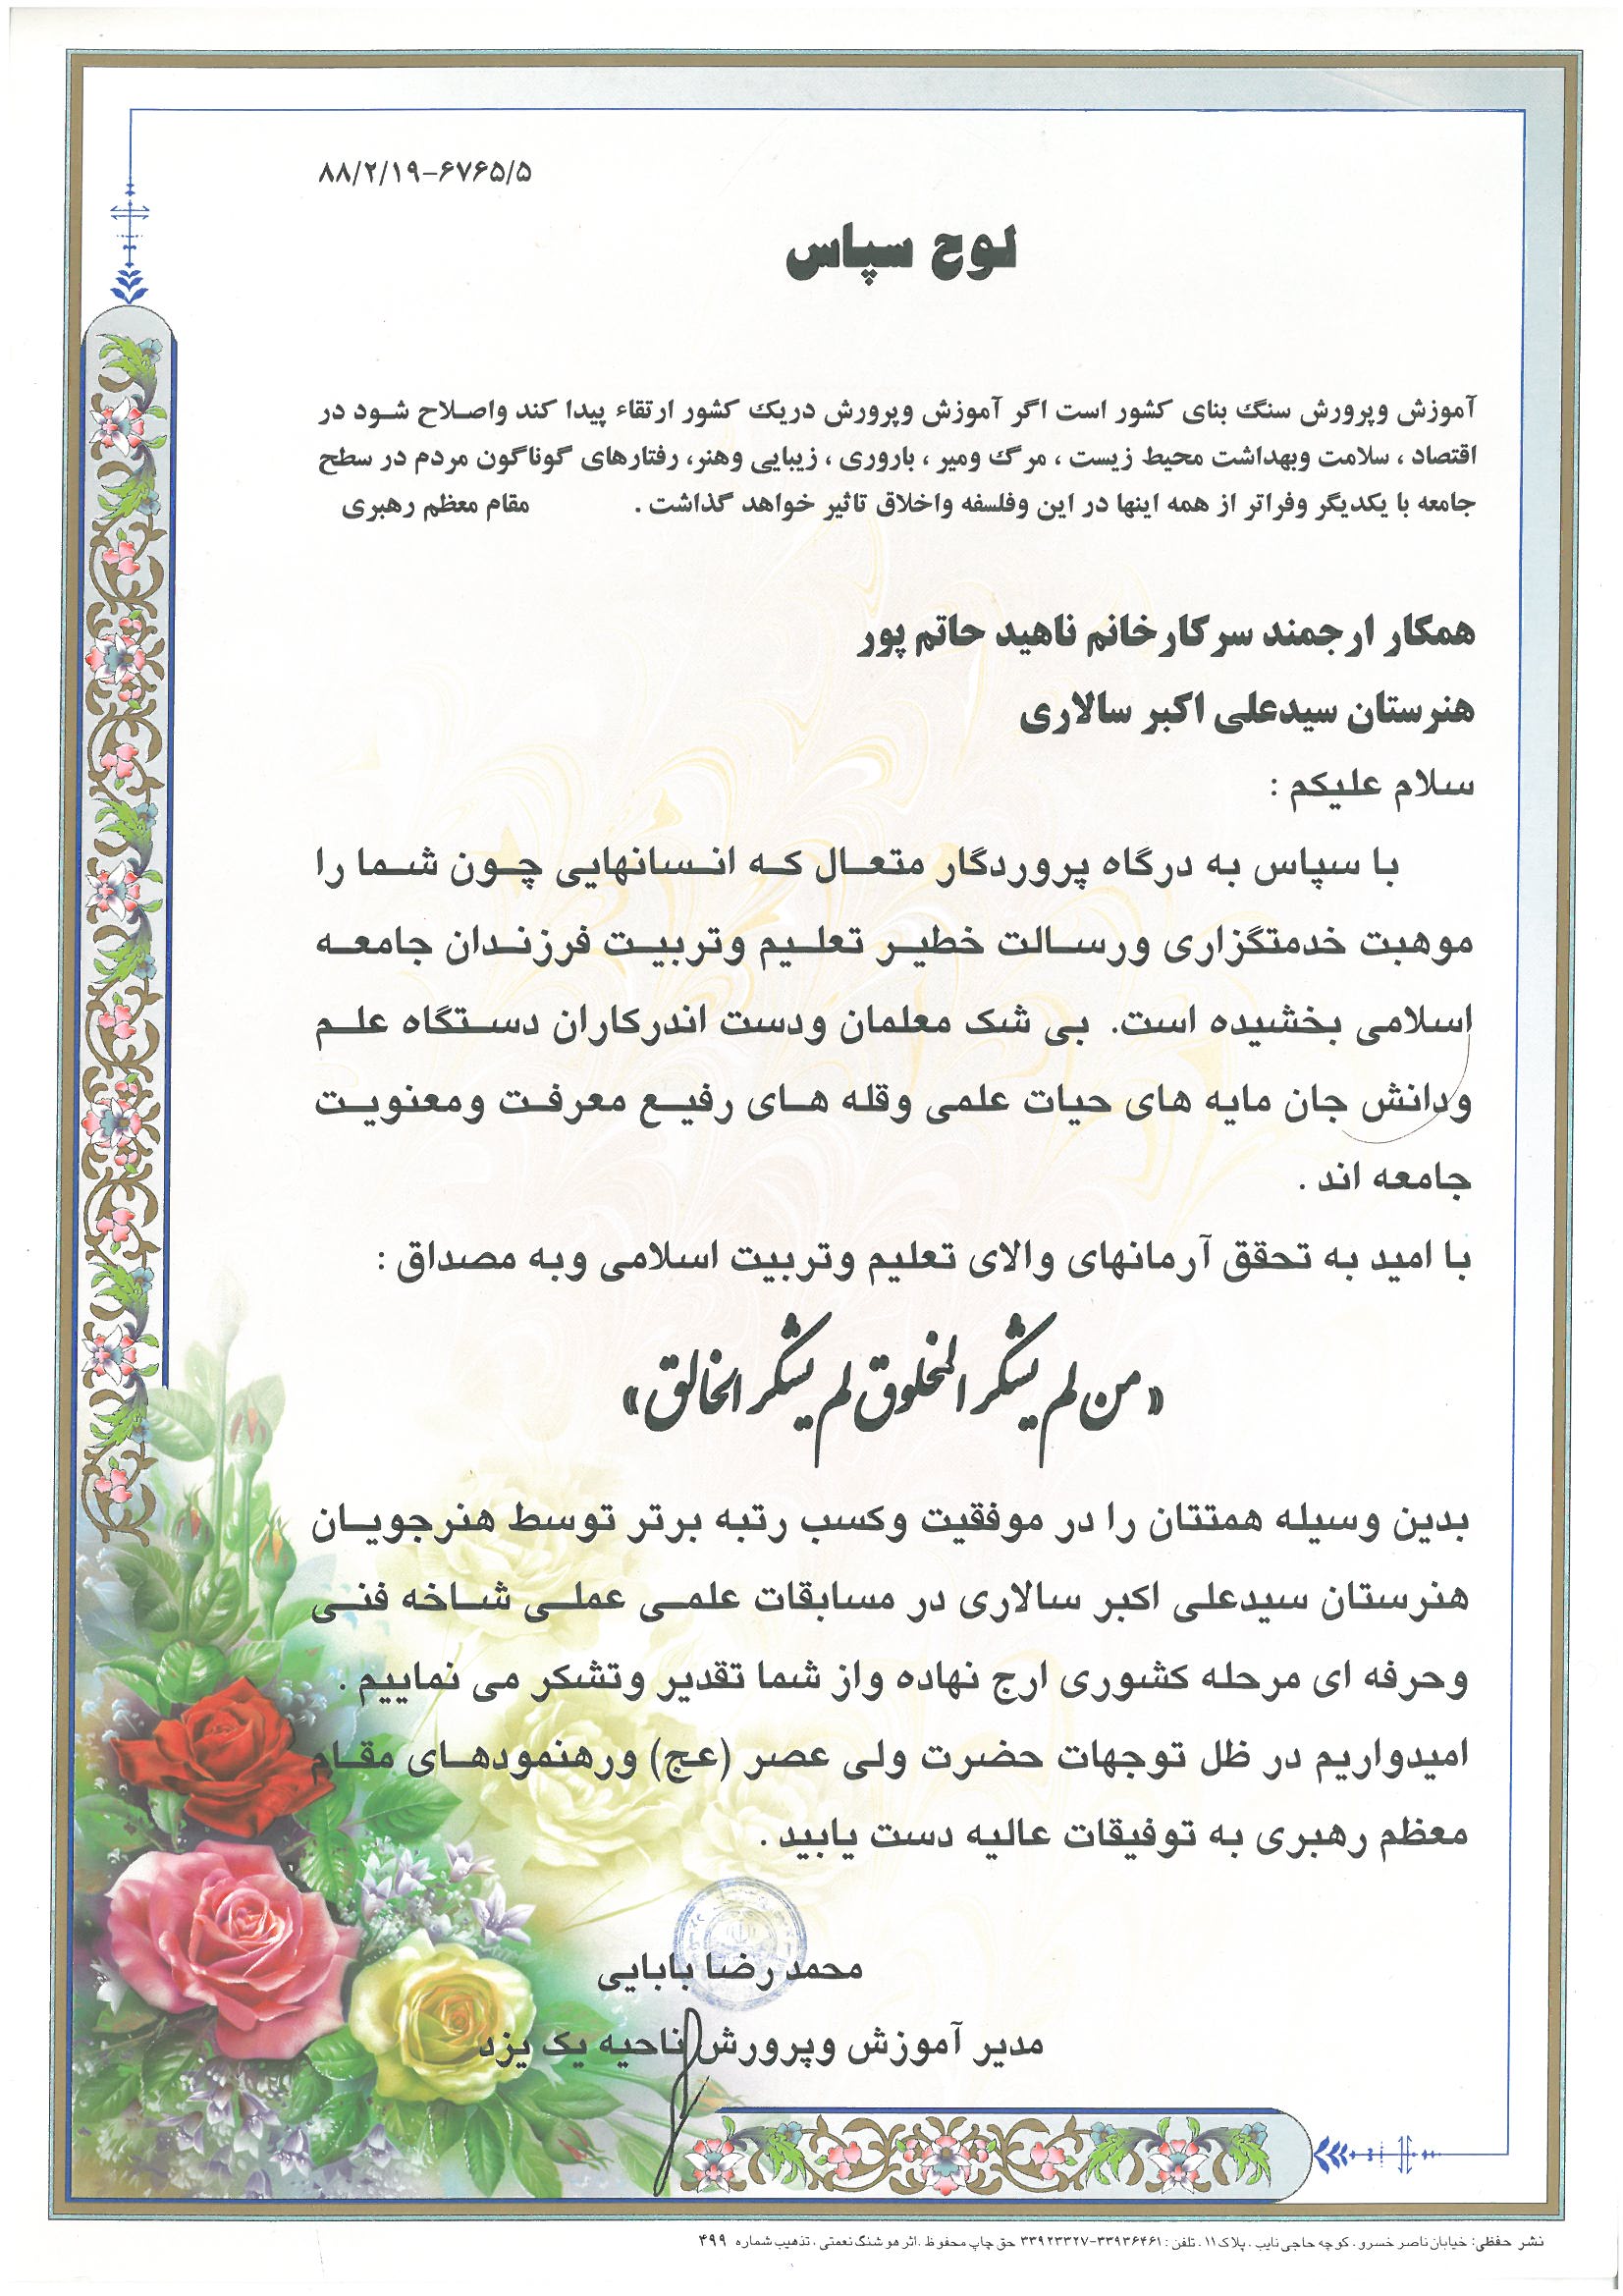 ۸۸/۲/۱۹-۶۷۶۵/۵
لوح سپاس
آموزش وپرورش سنگ بنای کشور است اگر آموزش وپرورش دریک کشور ارتقاء پیدا کند واصلاح شود در
اقتصاد ، سلامت وبهداشت محیط زیست ، مرگ ومیر ، باروری ، زیبایی وهنر، رفتارهای گوناگون مردم در سطح
جامعه با یکدیگر وفراتر از همه اینها در این وفلسفه واخلاق تاثیر خواهد گذاشت . مقام معظم رهبری
همکار ارجمند سرکارخانم ناهید حاتم پور
هنرستان سیدعلی اکبر سالاری
سلام علیکم :
با سپاس به درگاه پروردگار متعال که انسانهایی چون شما را
موهبت خدمتگزاری ورسالت خطیر تعلیم وتربیت فرزندان جامعه
اسلامی بخشیده است. بی شک معلمان ودست اندرکاران دستگاه علم
ودانش جان مایه های حیات علمی وقله های رفیع معرفت ومعنویت
جامعه اند .
با امید به تحقق آرمانهای والای تعلیم وتربیت اسلامی وبه مصداق :
«من لم یشکر المخلوق لم یشکر الخالق»
بدین وسیله همتتان را در موفقیت وکسب رتبه برتر توسط هنرجویان
هنرستان سیدعلی اکبر سالاری در مسابقات علمی عملی شاخه فنی
وحرفه ای مرحله کشوری ارج نهاده واز شما تقدیر وتشکر می نماییم .
امیدواریم در ظل توجهات حضرت ولی عصر (عج) ورهنمودهای مقام
معظم رهبری به توفیقات عالیه دست یابید .
محمد رضا بابایی
مدیر آموزش وپرورش ناحیه یک یزد
نشر حفظی: خیابان ناصر خسرو . کوچه حاجی نایب . پلاک ۱۱ . تلفن : ۳۳۹۳۶۴۶۱-۳۳۹۲۳۳۲۷ حق چاپ محفوظ . اثر هوشنگ نعمتی . تذهیب شماره ۴۹۹